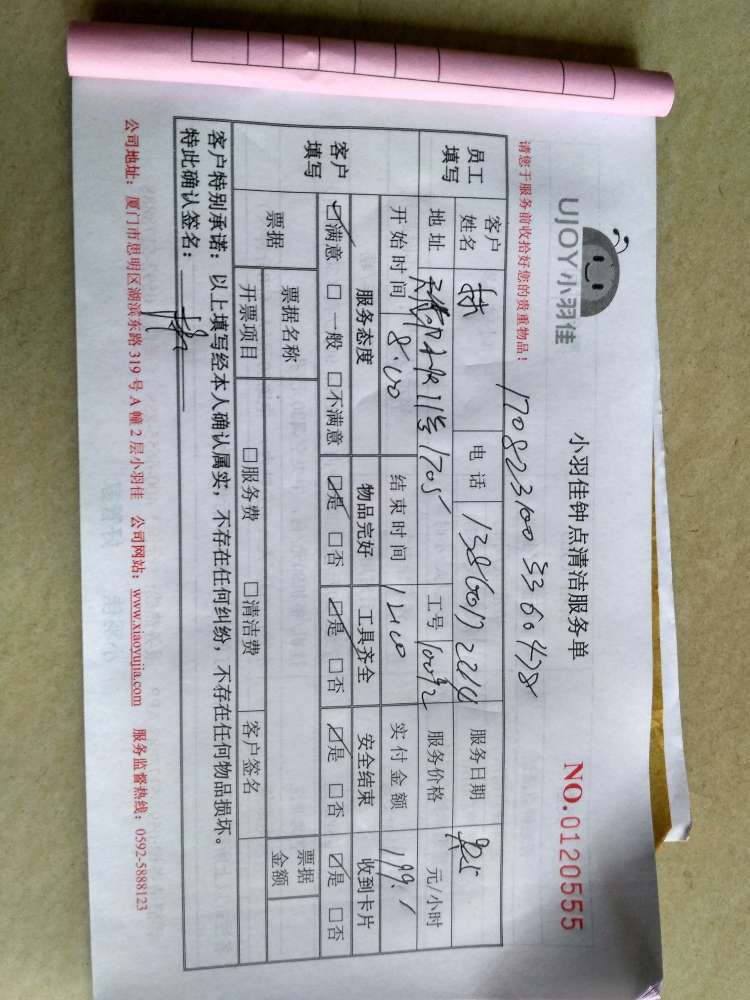 UJOY小羽佳
小羽佳钟点清洁服务单
NO.0120555
请您于服务前收拾好您的贵重物品！
1708231003360478
员工填写 客户姓名 电话 13860172214 服务日期
地址 11号1705 工号 服务价格 元/小时
开始时间 8:00 结束时间 实付金额 199.1
客户填写 服务态度 物品完好 工具齐全 安全结束 收到卡片
☑满意 □一般 □不满意 ☑是 □否 ☑是 □否 ☑是 □否 ☑是 □否
票据 票据名称 票据金额
开票项目 □服务费 □清洁费 客户签名
客户特别承诺：以上填写经本人确认属实，不存在任何纠纷，不存在任何物品损坏。
特此确认签名：
公司地址：厦门市思明区湖滨东路 319 号 A 幢 2 层小羽佳 公司网站：www.xiaoyujia.com 服务监督热线：0592-5888123